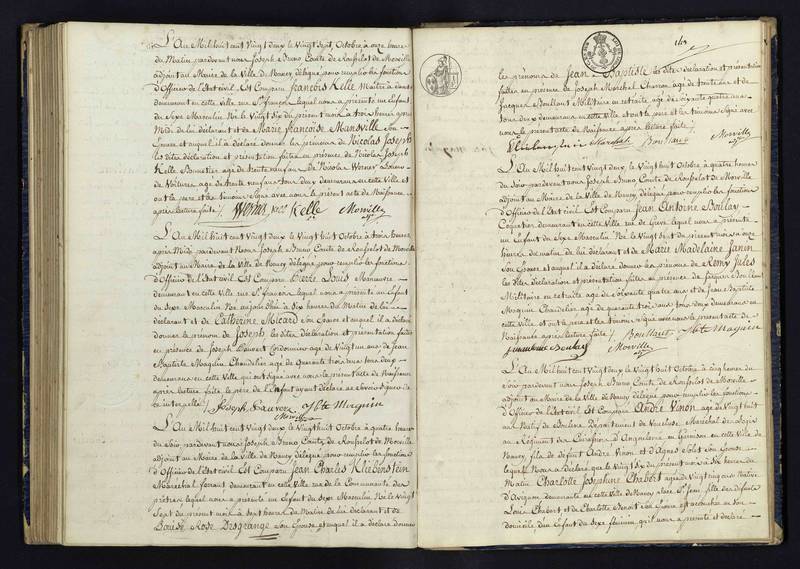 L'An Mil huit cent Vingt deux le Vingt sept Octobre à onze heures
du Matin pardevant nous Joseph Bruno Comte de Ronfilot de Morville
adjoint au Maire de la Ville de Nancy délégué pour remplir les fonctions
d'Officier de l'Etat civil. Est Comparu François Kelle
demeurant en cette ville rue St françois lequel nous a présenté un Enfant
du Sexe Masculin Né le Vingt Six du présent mois à trois heures après
Midi de lui déclarant et de Marie Françoise Mansville son
Epouse et auquel il a déclaré donner les prénoms de Nicolas Joseph
les dites déclaration et présentation faites en présence de Nicolas Joseph
Kelle Bonnetier agé de trente neuf ans de Nicolas Werner Loueur
de Voitures agé de trente neuf ans tous deux demeurans en cette Ville et
ont le pere et les témoins Signé avec nous le présent acte de Naissance
après lecture faite /. Kelle Morville
L'An Mil huit cent Vingt deux le Vingt huit Octobre à trois heures
après Midi pardevant Nous Joseph Bruno Comte de Ronfilot de Morville
adjoint au Maire de la Ville de Nancy délégué pour remplir les fonctions
d'Officier de l'Etat civil Est Comparu Pierre Louis Manœuvre
demeurant en cette ville rue St françois lequel nous a présenté un Enfant
du sexe Masculin Né aujourd'hui à Six heures du Matin de lui
déclarant et de Catherine Micard son Epouse et auquel il a déclaré
donner le prénom de Joseph les dites déclaration et présentation faites
en présence de Joseph Cordonnier agé de Vingt un ans de Jean
Baptiste Maguin Chandelier agé de quarante trois ans tous deux
demeurans en cette Ville qui ont signé avec nous le présent acte de Naissance
après lecture faite, le pere de l'Enfant ayant déclaré ne savoir signer de
ce interpellé /. Joseph Jbte Maguin
Morville
L'An Mil huit cent Vingt deux le Vingt huit Octobre à quatre heures
du Soir, pardevant nous Joseph Bruno Comte de Ronfilot de Morville
adjoint au Maire de la Ville de Nancy délégué pour remplir les fonctions
d'Officier de l'Etat civil Est Comparu Jean Charles Kleibenstein
Maréchal ferrant demeurant en cette ville rue de la Communauté des
prêtres lequel nous a présenté un Enfant du Sexe Masculin Né le Vingt
Sept du présent mois à sept heures du Matin de lui déclarant et de
Louise Rose Desgrange son Epouse, et auquel il a déclaré donner
les prénoms de Jean Baptiste les dites déclaration et présentation
faites en présence de Joseph Maréchal Charron agé de trente un ans et de
Jacques Boullant Militaire en retraite agé de soixante quatre ans
tous deux demeurans en cette Ville et ont le pere et les témoins Signé avec
nous le présent acte de Naissance après lecture faite /.
Kleibenstein Marechal Boullant Morville
L'An Mil huit cent Vingt deux, le Vingt huit Octobre à quatre heures
du Soir pardevant Nous Joseph Bruno Comte de Ronfilot de Morville
adjoint au Maire de la Ville de Nancy délégué pour remplir les fonctions
d'Officier de l'Etat civil Est Comparu Jean Antoine Boulay
Coquetier demeurant en cette Ville rue de Grève lequel nous a présenté
un Enfant du Sexe Masculin Né le Vingt Sept du présent mois à onze
heures du matin de lui déclarant et de Marie Madelaine Janin
son Epouse et auquel il a déclaré donner les prénoms de Remy Jules
les dites déclaration et présentation faites en présence de Jacques Boullant
Militaire en retraite agé de soixante quatre ans et de Jean Baptiste
Maguin Chandelier agé de quarante trois ans tous deux demeurans en
cette ville, et ont le pere et les témoins signé avec nous le présent acte de
Naissance après lecture faite /. Boullant Jbte Maguin
Boulay Morville
L'An Mil huit cent Vingt deux le Vingt huit Octobre à cinq heures du
Soir pardevant nous Joseph Bruno Comte de Ronfilot de Morville
adjoint au Maire de la Ville de Nancy délégué pour remplir les fonctions
d'Officier de l'Etat civil Est Comparu André Vinon agé de Vingt huit
ans Natif de Département de Vaucluse, Maréchal des Logis
au Régiment des Cuirassiers d'Angoulême en Garnison en cette Ville de
Nancy, fils de défunt André Vinon et d'Agnès Solet son Epouse
lequel Nous a déclaré que le Vingt Six du présent mois à six heures du
Matin Charlotte Josephine Chabert agée de Vingt cinq ans Native
d'Avignon demeurante en cette Ville de Nancy place St Jean fille des défunts
Louis Chabert et de Charlotte Benoit son Epouse est accouchée en son
domicile, d'un Enfant du Sexe féminin qu'il nous a présenté et déclaré